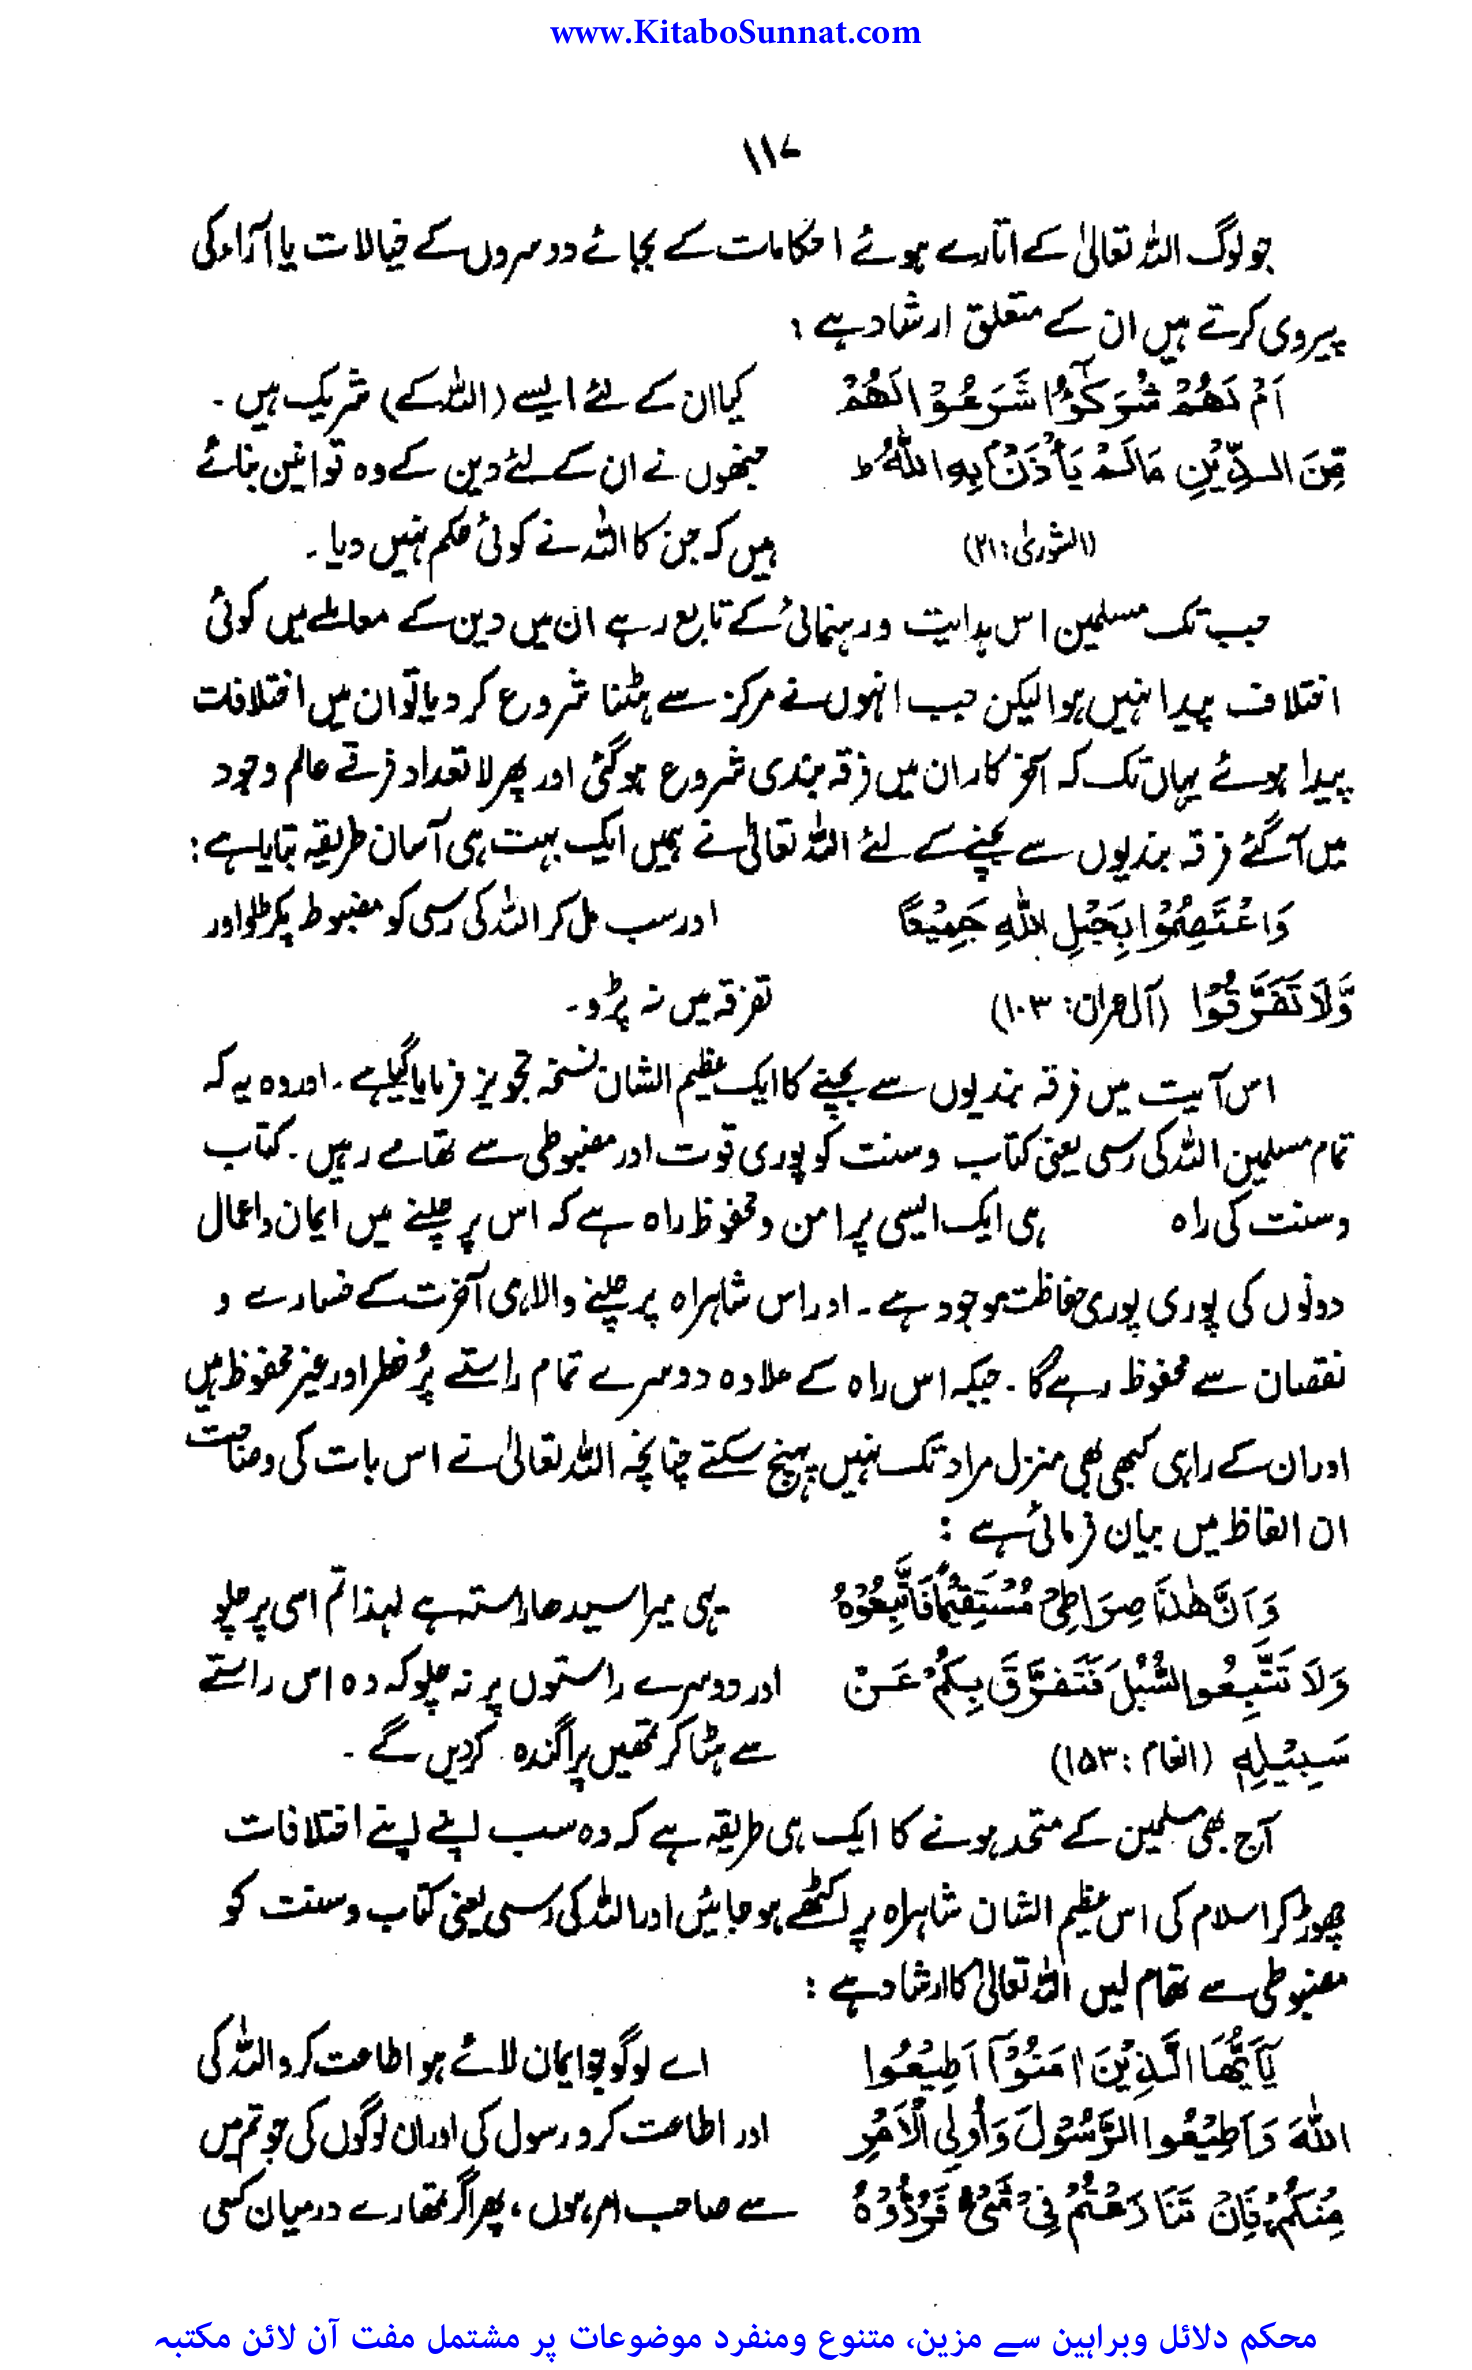 www.KitaboSunnat.com
۱۱۷
جو لوگ اللہ تعالیٰ کے اتارے ہوئے احکامات کے بجائے دوسروں کے خیالات یا آراء کی
پیروی کرتے ہیں ان کے متعلق ارشاد ہے :
اَمْ لَهُمْ شُرَكٰٓؤُا شَرَعُوْا لَهُمْ کیا ان کے لئے ایسے (اللہ کے) شریک ہیں ۔
مِّنَ الدِّيْنِ مَا لَمْ يَأْذَنْۢ بِهِ اللّٰهُ ط جنھوں نے ان کے لئے دین کے وہ قوانین بنائے
(الشوریٰ : ۲۱) ہیں کہ جن کا اللہ نے کوئی حکم نہیں دیا ۔
جب تک مسلمین اس ہدایت ورہنمائی کے تابع رہے ان میں دین کے معاملے میں کوئی
اختلاف پیدا نہیں ہوا لیکن جب انہوں نے مرکز سے ہٹنا شروع کر دیا تو ان میں اختلافات
پیدا ہوئے یہاں تک کہ آخر کار ان میں فرقہ بندی شروع ہوگئی اور پھر لاتعداد فرقے عالم وجود
میں آگئے فرقہ بندیوں سے بچنے کے لئے اللہ تعالیٰ نے ہمیں ایک بہت ہی آسان طریقہ بتایا ہے :
وَاعْتَصِمُوْا بِحَبْلِ اللّٰهِ جَمِيْعًا اور سب مل کر اللہ کی رسی کو مضبوط پکڑلو اور
وَّلَا تَفَرَّقُوْا (آل عمران : ۱۰۳) تفرقہ میں نہ پڑو ۔
اس آیت میں فرقہ بندیوں سے بچنے کا ایک عظیم الشان نسخہ تجویز فرمایا گیا ہے ۔ اور وہ یہ کہ
تمام مسلمین اللہ کی رسی یعنی کتاب وسنت کو پوری قوت اور مضبوطی سے تھامے رہیں ۔ کتاب
وسنت کی راہ ہی ایک ایسی پرامن ومحفوظ راہ ہے کہ اس پر چلنے میں ایمان واعمال
دونوں کی پوری پوری حفاظت موجود ہے ۔ اور اس شاہراہ پر چلنے والا ہی آخرت کے خسارے و
نقصان سے محفوظ رہے گا ۔ جبکہ اس راہ کے علاوہ دوسرے تمام راستے پُرخطر اور غیر محفوظ ہیں
اور ان کے راہی کبھی بھی منزل مراد تک نہیں پہنچ سکتے چنانچہ اللہ تعالیٰ نے اس بات کی وضاحت
ان الفاظ میں بیان فرمائی ہے :
وَاَنَّ هٰذَا صِرَاطِيْ مُسْتَقِيْمًا فَاتَّبِعُوْهُ یہی میرا سیدھا راستہ ہے لہذا تم اسی پر چلو
وَلَا تَتَّبِعُوا السُّبُلَ فَتَفَرَّقَ بِكُمْ عَنْ اور دوسرے راستوں پر نہ چلو کہ وہ اس راستے
سَبِيْلِهٖ (انعام : ۱۵۳) سے ہٹا کر تمھیں پراگندہ کردیں گے ۔
آج بھی مسلمین کے متحد ہونے کا ایک ہی طریقہ ہے کہ وہ سب اپنے اپنے اختلافات
چھوڑ کر اسلام کی اس عظیم الشان شاہراہ پر اکٹھے ہو جائیں اور اللہ کی رسی یعنی کتاب وسنت کو
مضبوطی سے تھام لیں اللہ تعالیٰ کا ارشاد ہے :
يٰٓاَيُّهَا الَّذِيْنَ اٰمَنُوْٓا اَطِيْعُوا اے لوگو جو ایمان لائے ہو اطاعت کرو اللہ کی
اللّٰهَ وَاَطِيْعُوا الرَّسُوْلَ وَاُولِي الْاَمْرِ اور اطاعت کرو رسول کی اور ان لوگوں کی جو تم میں
مِنْكُمْ فَاِنْ تَنَازَعْتُمْ فِيْ شَيْءٍ فَرُدُّوْهُ سے صاحب امر ہوں ، پھر اگر تمھارے درمیان کسی
محکم دلائل وبراہین سے مزین، متنوع ومنفرد موضوعات پر مشتمل مفت آن لائن مکتبہ